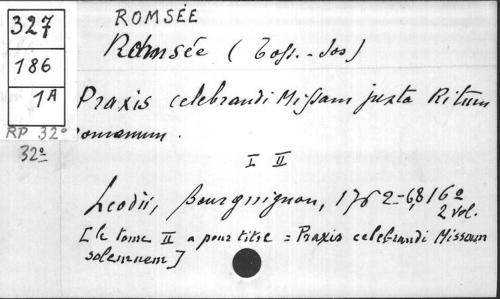 327
186
1A
RP 32°
32°
ROMSÉE
Romsée (Toss. - Jos)
Praxis celebrandi Missam juxta Ritum
romanum.
I II
Leodii, Bourguignon, 1762-68, 16°
2 vol.
[le tome II a pour titre = Praxis celebrandi Missam
solemnem]